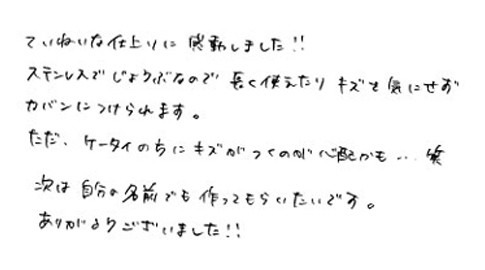 ていねいな仕上りに感動しました!!
ステンレスでじょうぶなので長く使えたりキズを気にせず
カバンにつけられます。
ただ、ケータイのちにキズがつくのが心配かも…笑
次は自分の名前でも作ってもらいたいです。
ありがとうございました!!